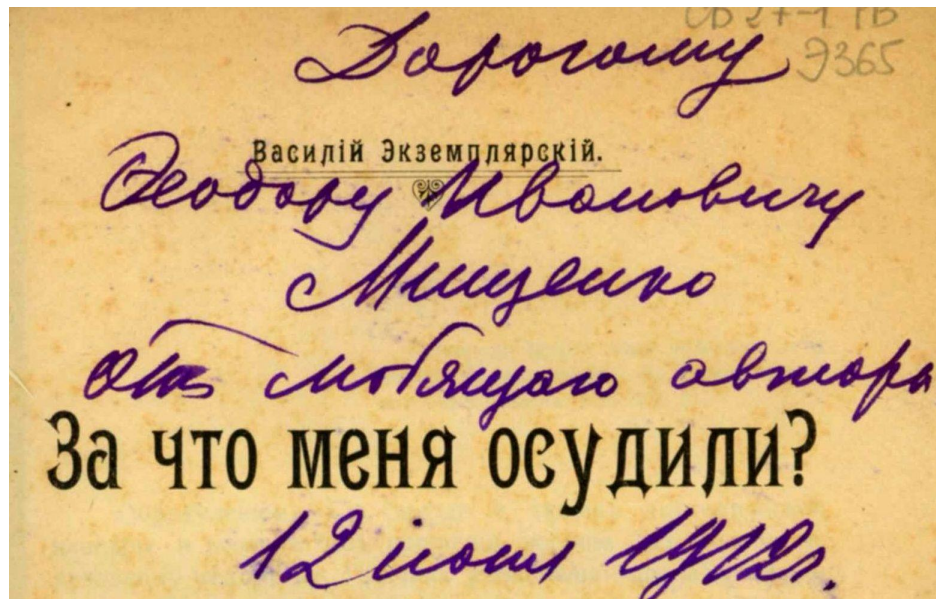 Дорогому
Э365
Василій Экземплярскій.
Феодору Ивановичу
Мищенко
отъ любящаго автора
За что меня осудили?
12 іюня 1912г.